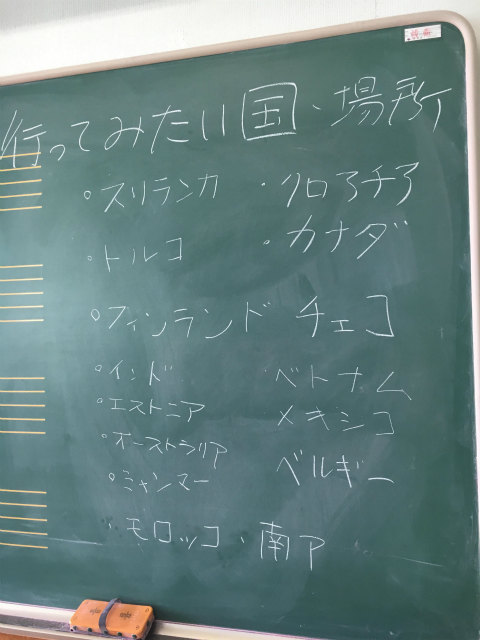 行ってみたい国・場所
・スリランカ ・クロアチア
・トルコ ・カナダ
・フィンランド チェコ
・インド ・ベトナム
・エストニア メキシコ
・オーストラリア
・ミャンマー ベルギー
・モロッコ ・南ア